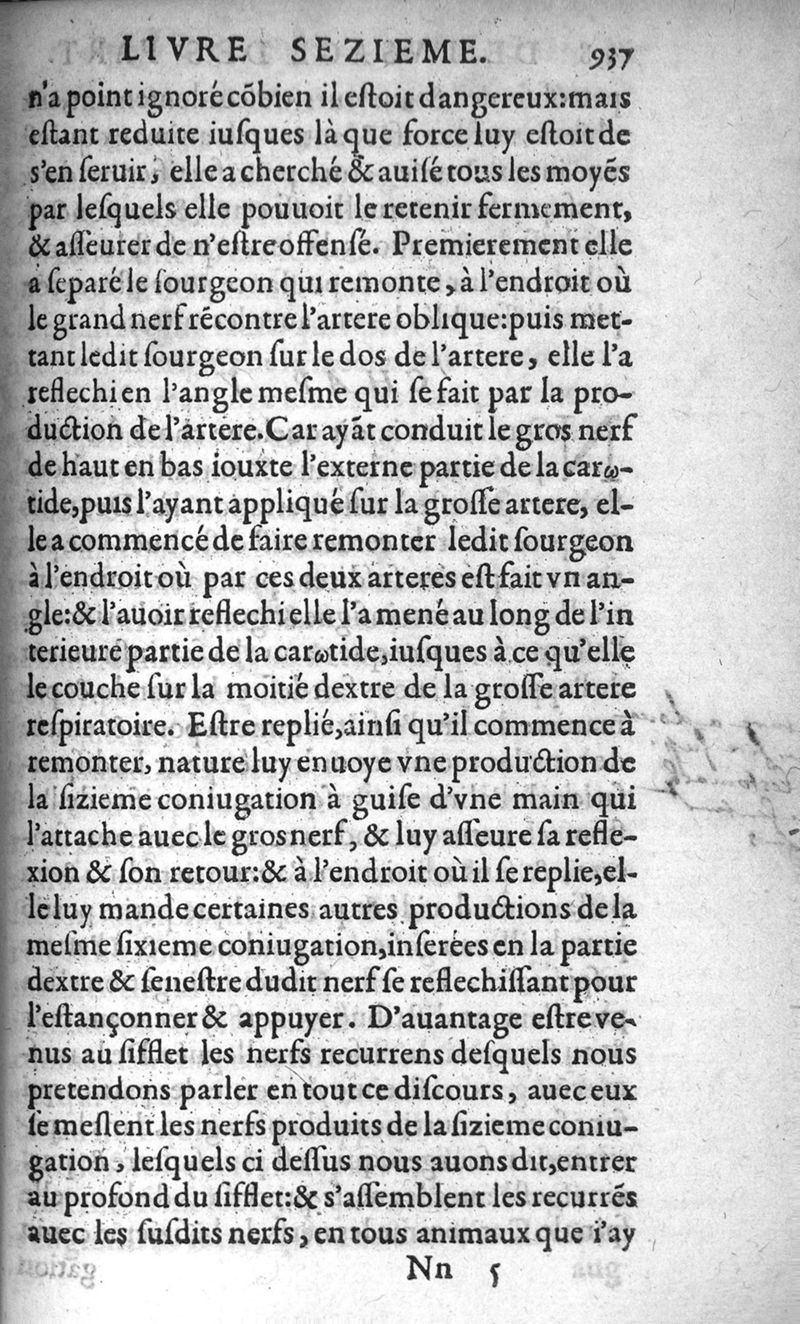 LIVRE SEZIEME. 937
n'a point ignoré cõbien il eſtoit dangereux:mais
eſtant reduite iuſques là que force luy eſtoit de
s'en ſeruir, elle a cherché & auiſé tous les moyẽs
par leſquels elle pouuoit le retenir fermement,
& aſſeurer de n'eſtre offenſé. Premierement elle
a ſeparé le ſourgeon qui remonte, à l'endroit où
le grand nerf rẽcontre l'artere oblique:puis met-
tant ledit ſourgeon ſur le dos de l'artere, elle l'a
reflechi en l'angle meſme qui ſe fait par la pro-
duction de l'artere.Car ayãt conduit le gros nerf
de haut en bas iouxte l'externe partie de la carω-
tide,puis l'ayant appliqué ſur la groſſe artere, el-
le a commencé de faire remonter ledit ſourgeon
à l'endroit où par ces deux arteres eſt fait vn an-
gle:& l'auoir reflechi elle l'a mené au long de l'in
terieure partie de la carωtide,iuſques à ce qu'elle
le couche ſur la moitié dextre de la groſſe artere
reſpiratoire. Eſtre replié,ainſi qu'il commence à
remonter, nature luy enuoye vne production de
la ſizieme coniugation à guiſe d'vne main qui
l'attache auec le gros nerf, & luy aſſeure ſa refle-
xion & ſon retour:& à l'endroit où il ſe replie,el-
le luy mande certaines autres productions de la
meſme ſixieme coniugation,inſerées en la partie
dextre & ſeneſtre dudit nerf ſe reflechiſſant pour
l'eſtançonner & appuyer. D'auantage eſtre ve-
nus au ſifflet les nerfs recurrens deſquels nous
pretendons parler en tout ce diſcours, auec eux
ſe meſlent les nerfs produits de la ſizieme coniu-
gation, leſquels ci deſſus nous auons dit,entrer
au profond du ſifflet:& s'aſſemblent les recurrẽs
auec les ſuſdits nerfs, en tous animaux que i'ay
Nn 5